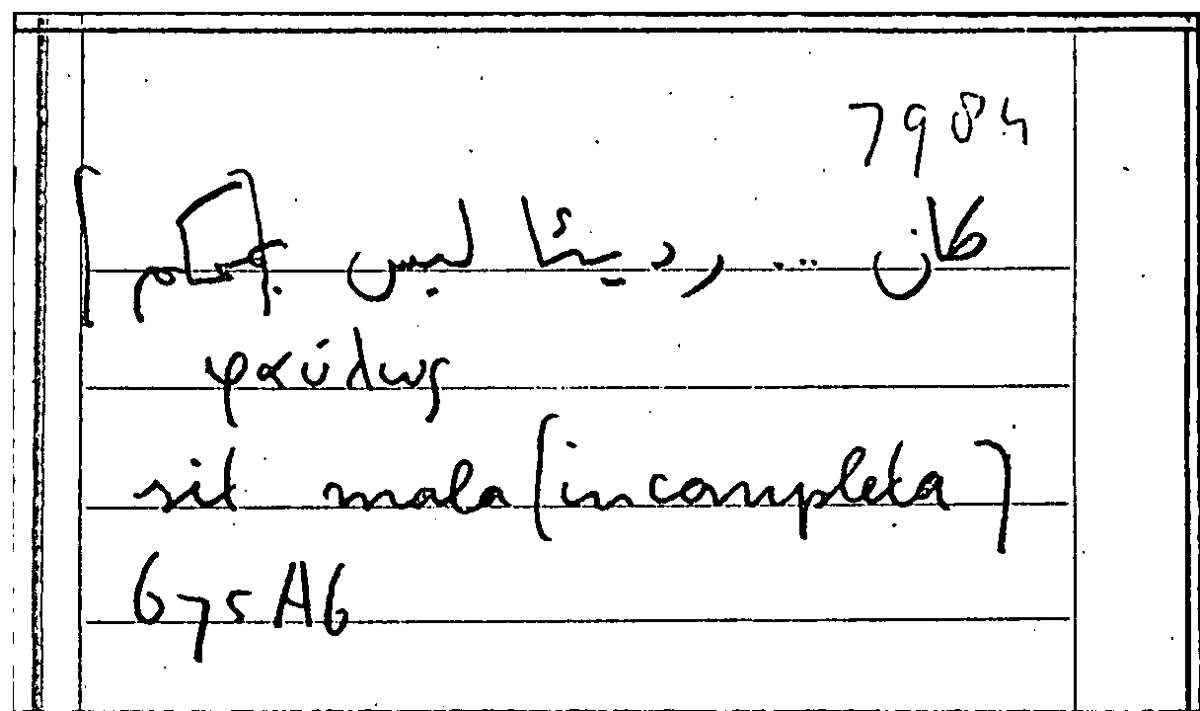 7984
كان ... رديئا ليس بمحكم
φαύλως
sit mala (incompleta)
675A6